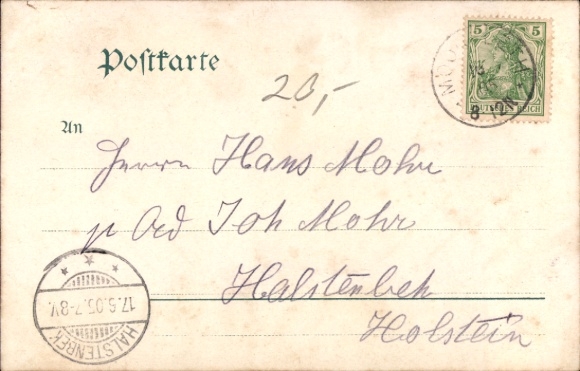 5 5
DEUTSCHES REICH
8-12N
Postkarte
20,-
An
Herrn Hans Mohr
p Adr Joh Mohr
Halstenbek
Holstein
17.6.05.7-8V.
HALSTENBEK